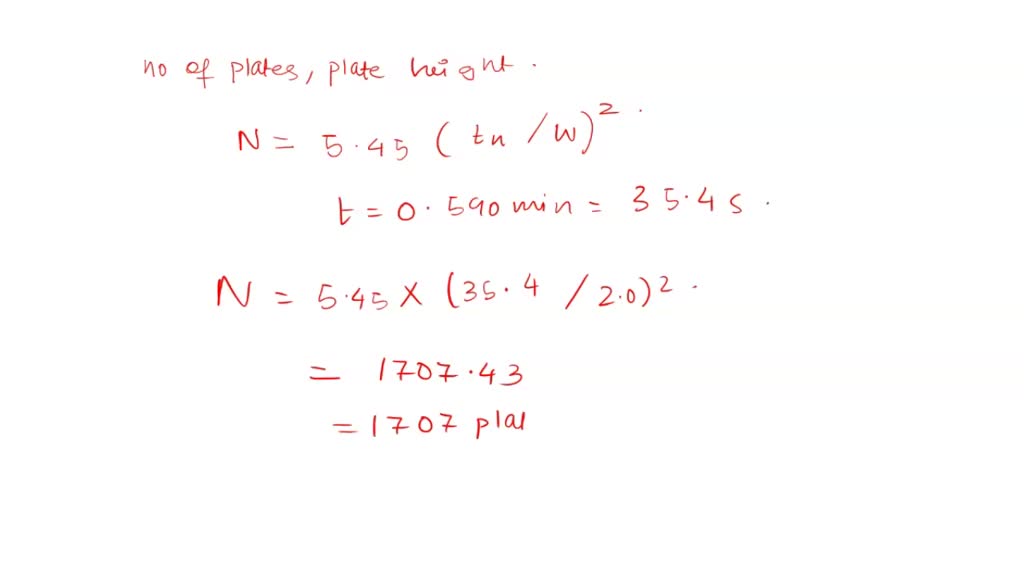 no of plates, plate height.
N = 5.45 (tn/w)²
t = 0.590 min = 35.4 s.
N = 5.45 X (35.4 / 2.0)².
= 1707.43
= 1707 plat